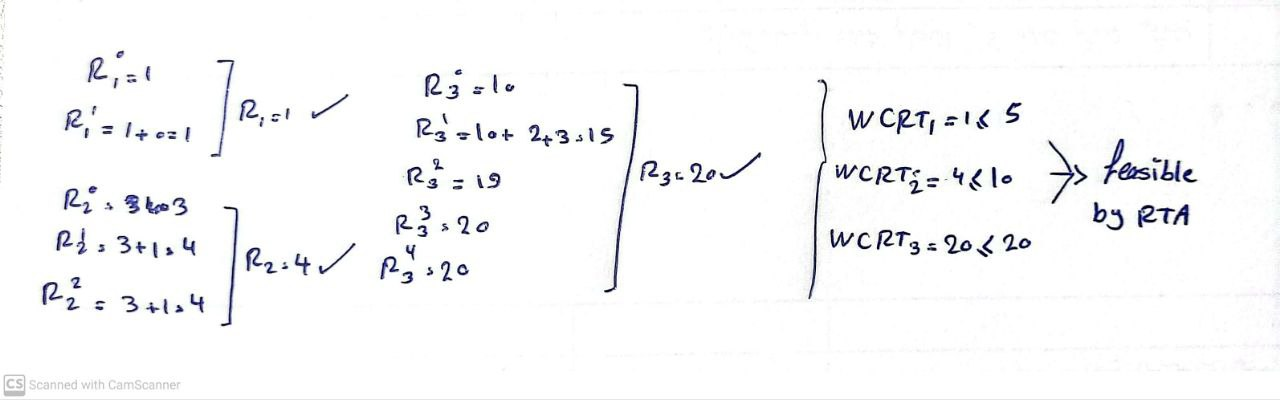 R₁⁰ = 1
R₁¹ = 1+0=1
R₁=1 ✓
R₂⁰ = 3
R₂¹ = 3+1=4
R₂² = 3+1=4
R₂=4 ✓
R₃⁰ = 10
R₃¹ = 10+2+3=15
R₃² = 19
R₃³ = 20
R₃⁴ = 20
R₃=20 ✓
WCRT₁ = 1 ≤ 5
WCRT₂ = 4 ≤ 10
WCRT₃ = 20 ≤ 20
feasible
by RTA
CS Scanned with CamScanner